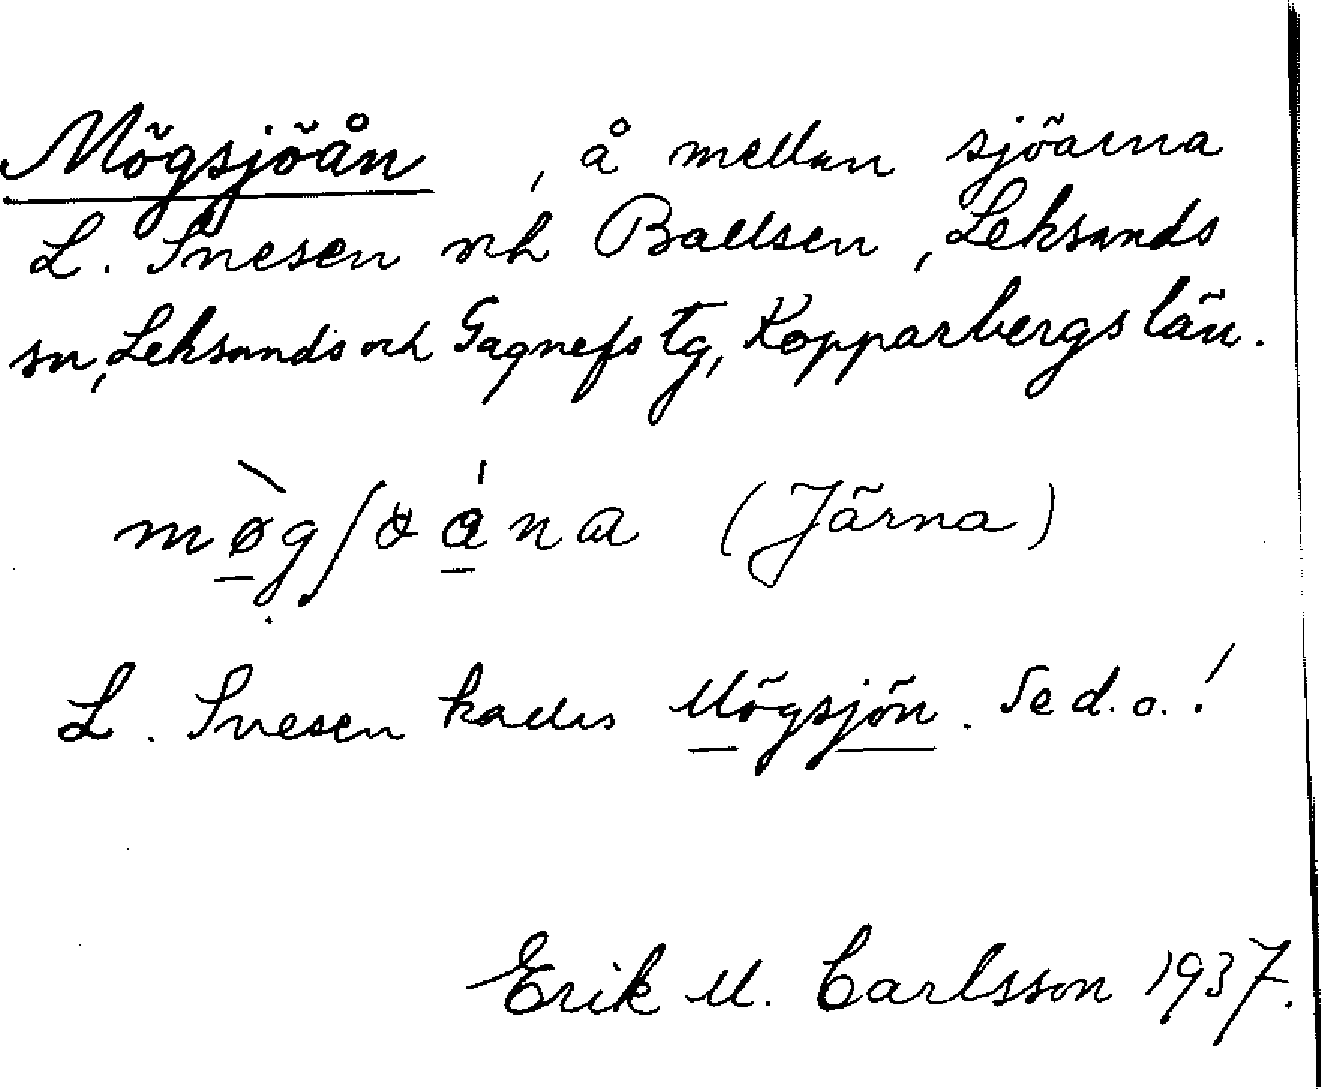 Mögsjöån , å mellan sjöarna
L. Snesen och Ballsen, Leksands
sn, Leksands och Gagnefs tg, Kopparbergs län.
(Järna)
L. Snesen kallas Mögsjön. Se d.o.!
Erik M. Carlsson 1937.